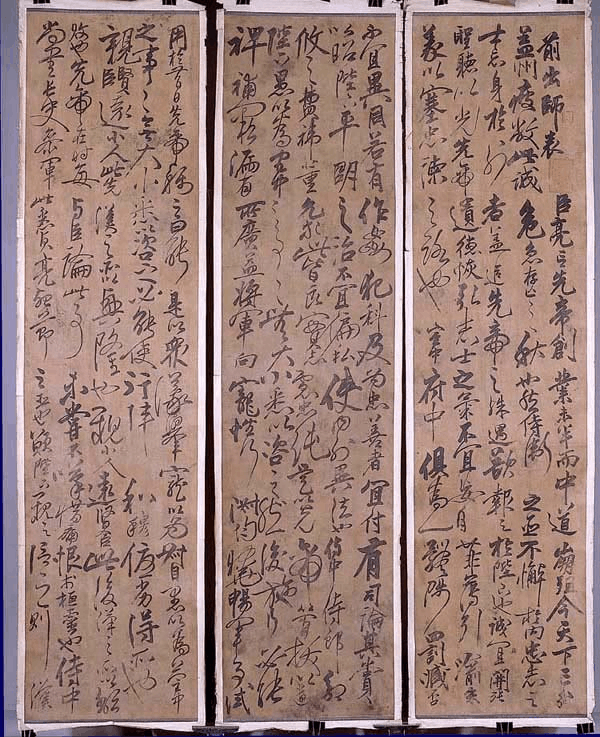 前出師表 臣亮言先帝創業未半而中道崩殂今天下三分
益州疲敝此誠危急存亡之秋也然侍衛之臣不懈於內忠志之
士忘身於外者蓋追先帝之殊遇欲報之於陛下也誠宜開張
聖聽以光先帝遺德恢弘志士之氣不宜妄自菲薄引喻失
義以塞忠諫之路也宮中府中俱為一體陟罰臧否
不宜異同若有作姦犯科及為忠善者宜付有司論其賞
以昭陛下平明之治不宜偏私使內外異法也侍中侍郎郭
攸之費禕董允等此皆良實志慮忠純是以先帝簡拔以遺
陛下愚以為宮中之事事無大小悉以咨之然後施行必能
裨補闕漏有所廣益將軍向寵性行淑均曉暢軍事試
用於昔日先帝稱之曰能是以眾議舉寵以為督愚以為營中
之事事無大小悉以咨之必能使行陣和睦優劣得所也
親賢臣遠小人此先漢之所以興隆也親小人遠賢臣此後漢之所以傾
頹也先帝在時每與臣論此事未嘗不歎息痛恨於桓靈也侍中
尚書長史參軍此悉貞亮死節之臣也願陛下親之信之則漢